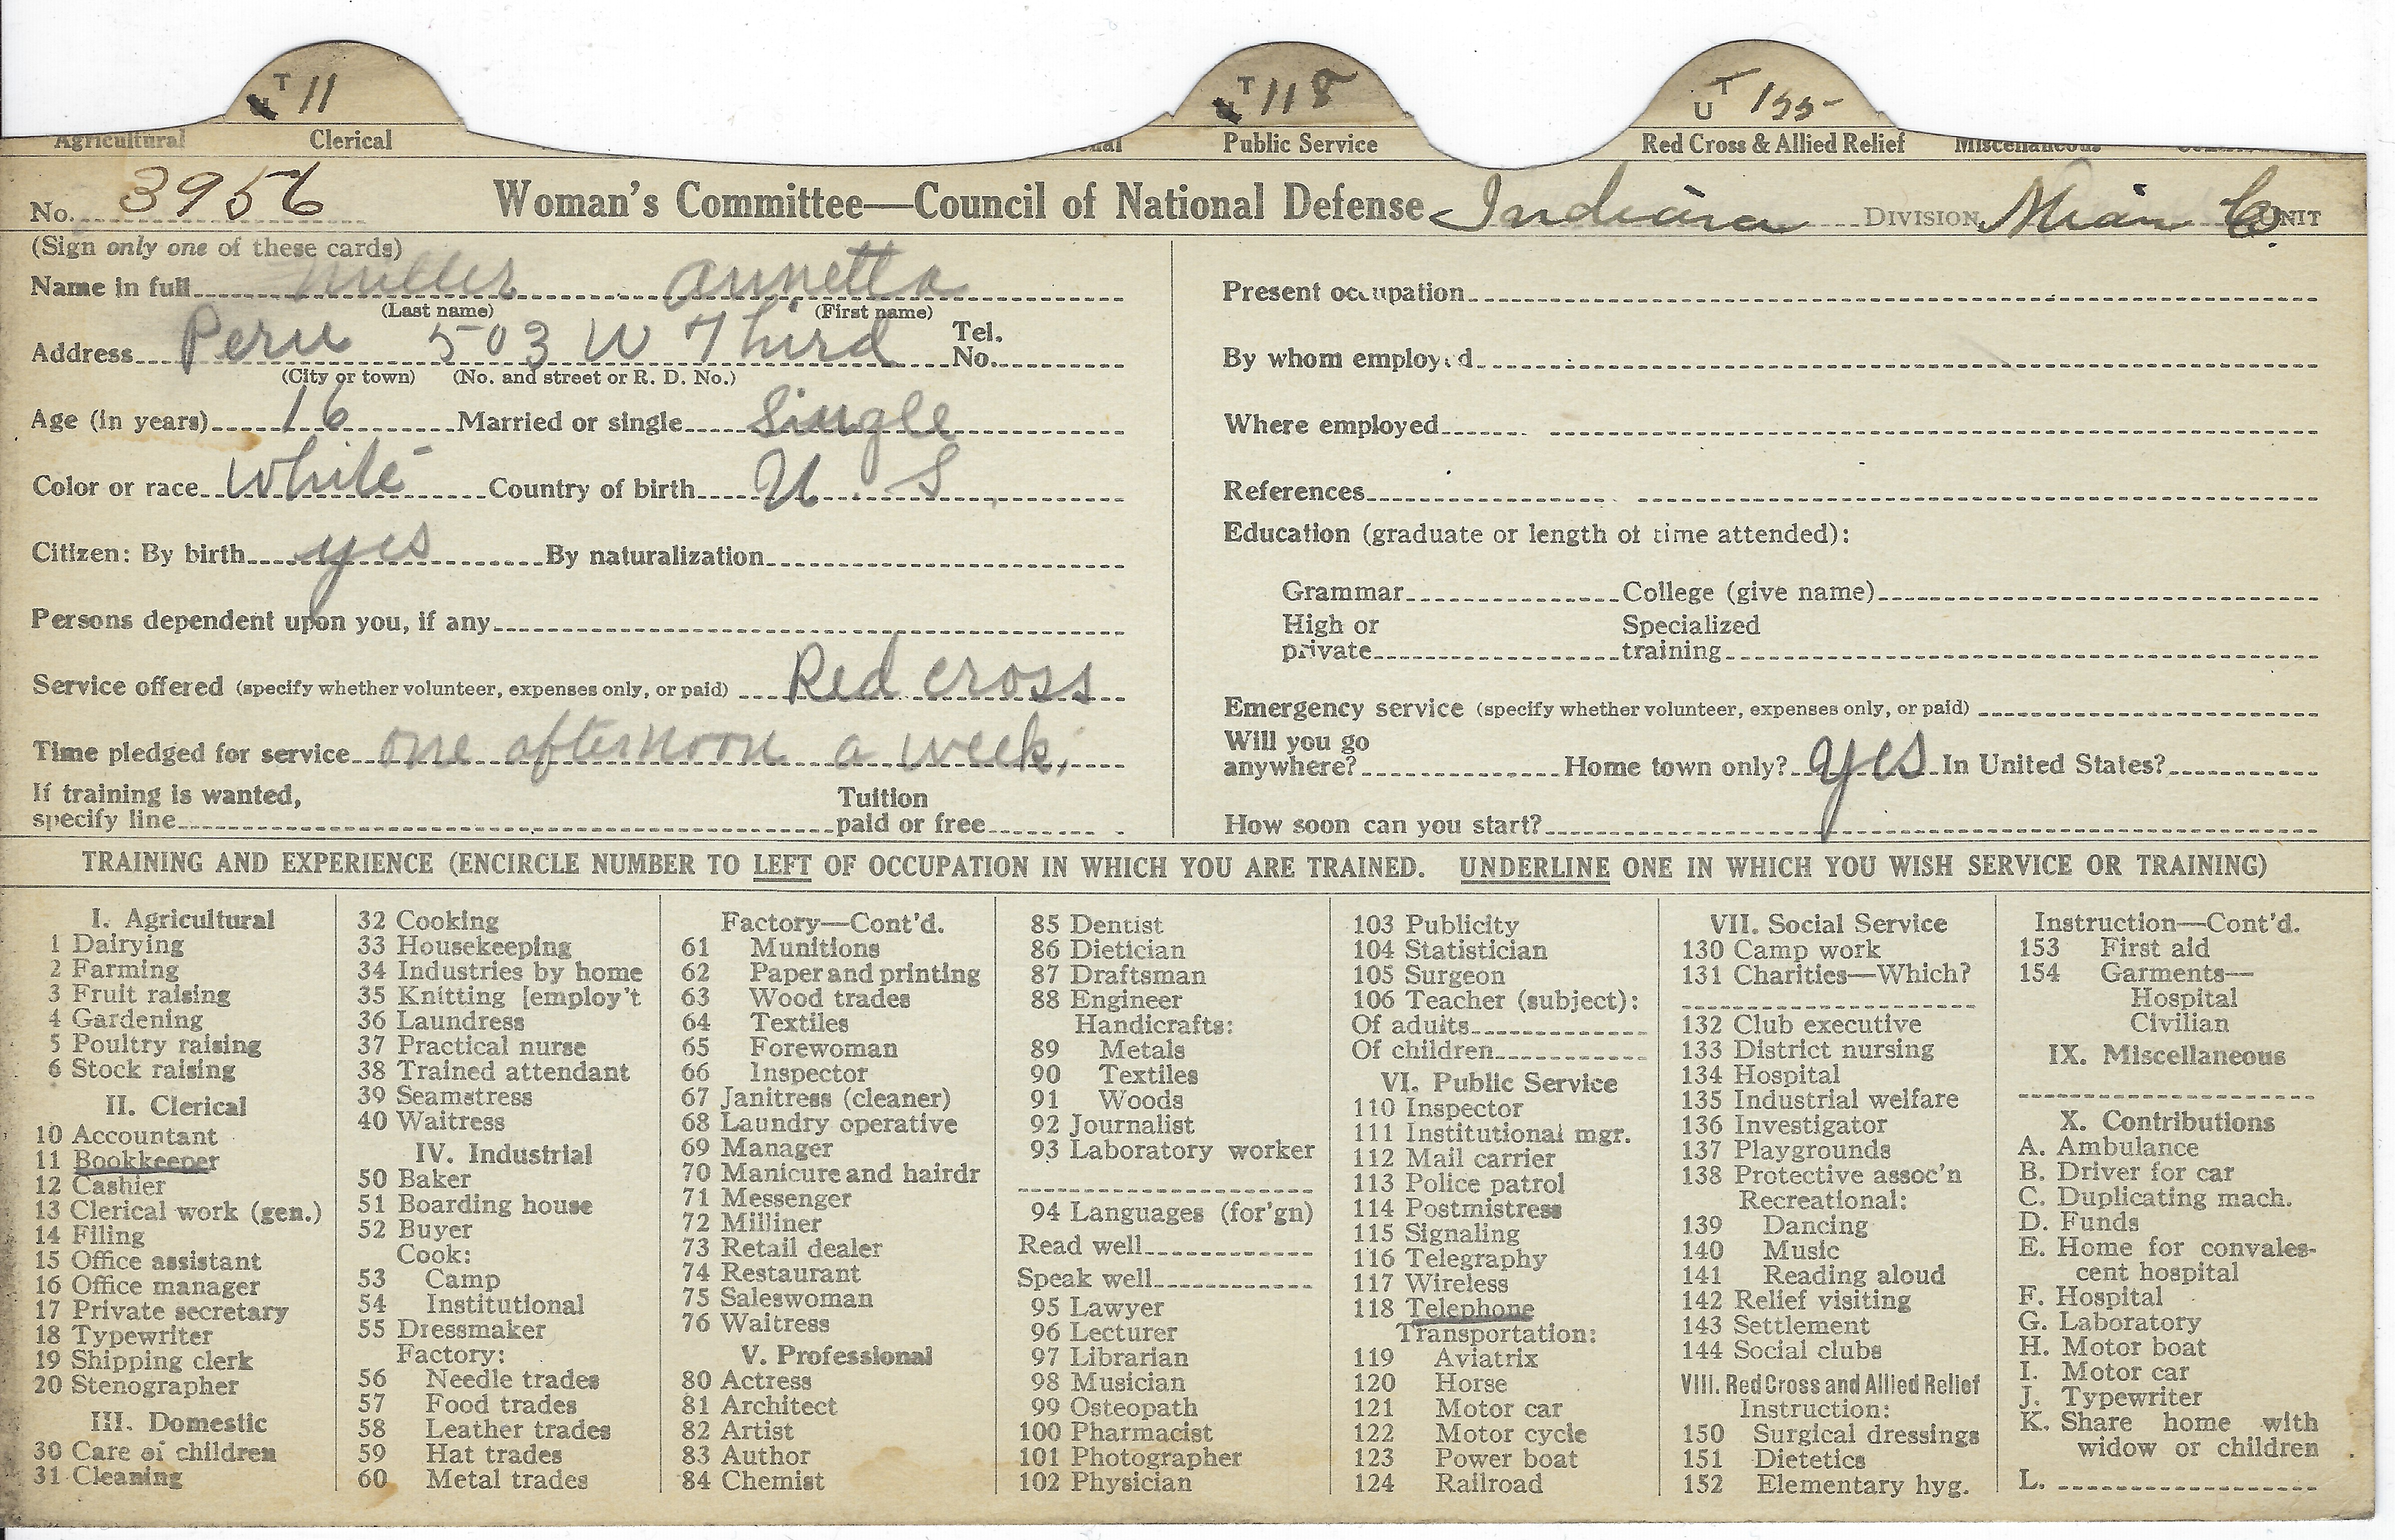 T 11 T 118 U T 155
Agricultural Clerical Public Service Red Cross & Allied Relief Miscellaneous
No. 3956 Woman's Committee—Council of National Defense Indiana DIVISION Miami Co. UNIT
(Sign only one of these cards)
Name in full Miller Annetta
(Last name) (First name)
Address Peru 503 W Third Tel. No.
(City or town) (No. and street or R. D. No.)
Age (in years) 16 Married or single Single
Color or race White Country of birth U. S.
Citizen: By birth yes By naturalization
Persons dependent upon you, if any
Service offered (specify whether volunteer, expenses only, or paid) Red cross
Time pledged for service one afternoon a week.
If training is wanted, specify line Tuition paid or free
Present occupation
By whom employed
Where employed
References
Education (graduate or length of time attended):
Grammar College (give name)
High or private Specialized training
Emergency service (specify whether volunteer, expenses only, or paid)
Will you go anywhere? Home town only? yes In United States?
How soon can you start?
TRAINING AND EXPERIENCE (ENCIRCLE NUMBER TO LEFT OF OCCUPATION IN WHICH YOU ARE TRAINED. UNDERLINE ONE IN WHICH YOU WISH SERVICE OR TRAINING)
I. Agricultural
1 Dairying
2 Farming
3 Fruit raising
4 Gardening
5 Poultry raising
6 Stock raising
II. Clerical
10 Accountant
11 Bookkeeper
12 Cashier
13 Clerical work (gen.)
14 Filing
15 Office assistant
16 Office manager
17 Private secretary
18 Typewriter
19 Shipping clerk
20 Stenographer
III. Domestic
30 Care of children
31 Cleaning
32 Cooking
33 Housekeeping
34 Industries by home
35 Knitting [employ't
36 Laundress
37 Practical nurse
38 Trained attendant
39 Seamstress
40 Waitress
IV. Industrial
50 Baker
51 Boarding house
52 Buyer
Cook:
53 Camp
54 Institutional
55 Dressmaker
Factory:
56 Needle trades
57 Food trades
58 Leather trades
59 Hat trades
60 Metal trades
Factory—Cont'd.
61 Munitions
62 Paper and printing
63 Wood trades
64 Textiles
65 Forewoman
66 Inspector
67 Janitress (cleaner)
68 Laundry operative
69 Manager
70 Manicure and hairdr
71 Messenger
72 Milliner
73 Retail dealer
74 Restaurant
75 Saleswoman
76 Waitress
V. Professional
80 Actress
81 Architect
82 Artist
83 Author
84 Chemist
85 Dentist
86 Dietician
87 Draftsman
88 Engineer
Handicrafts:
89 Metals
90 Textiles
91 Woods
92 Journalist
93 Laboratory worker
94 Languages (for'gn)
Read well
Speak well
95 Lawyer
96 Lecturer
97 Librarian
98 Musician
99 Osteopath
100 Pharmacist
101 Photographer
102 Physician
103 Publicity
104 Statistician
105 Surgeon
106 Teacher (subject):
Of adults
Of children
VI. Public Service
110 Inspector
111 Institutional mgr.
112 Mail carrier
113 Police patrol
114 Postmistress
115 Signaling
116 Telegraphy
117 Wireless
118 Telephone
Transportation:
119 Aviatrix
120 Horse
121 Motor car
122 Motor cycle
123 Power boat
124 Railroad
VII. Social Service
130 Camp work
131 Charities—Which?
132 Club executive
133 District nursing
134 Hospital
135 Industrial welfare
136 Investigator
137 Playgrounds
138 Protective assoc'n
Recreational:
139 Dancing
140 Music
141 Reading aloud
142 Relief visiting
143 Settlement
144 Social clubs
VIII. Red Cross and Allied Relief
Instruction:
150 Surgical dressings
151 Dietetics
152 Elementary hyg.
Instruction—Cont'd.
153 First aid
154 Garments—
Hospital
Civilian
IX. Miscellaneous
X. Contributions
A. Ambulance
B. Driver for car
C. Duplicating mach.
D. Funds
E. Home for convales-
cent hospital
F. Hospital
G. Laboratory
H. Motor boat
I. Motor car
J. Typewriter
K. Share home with
widow or children
L.